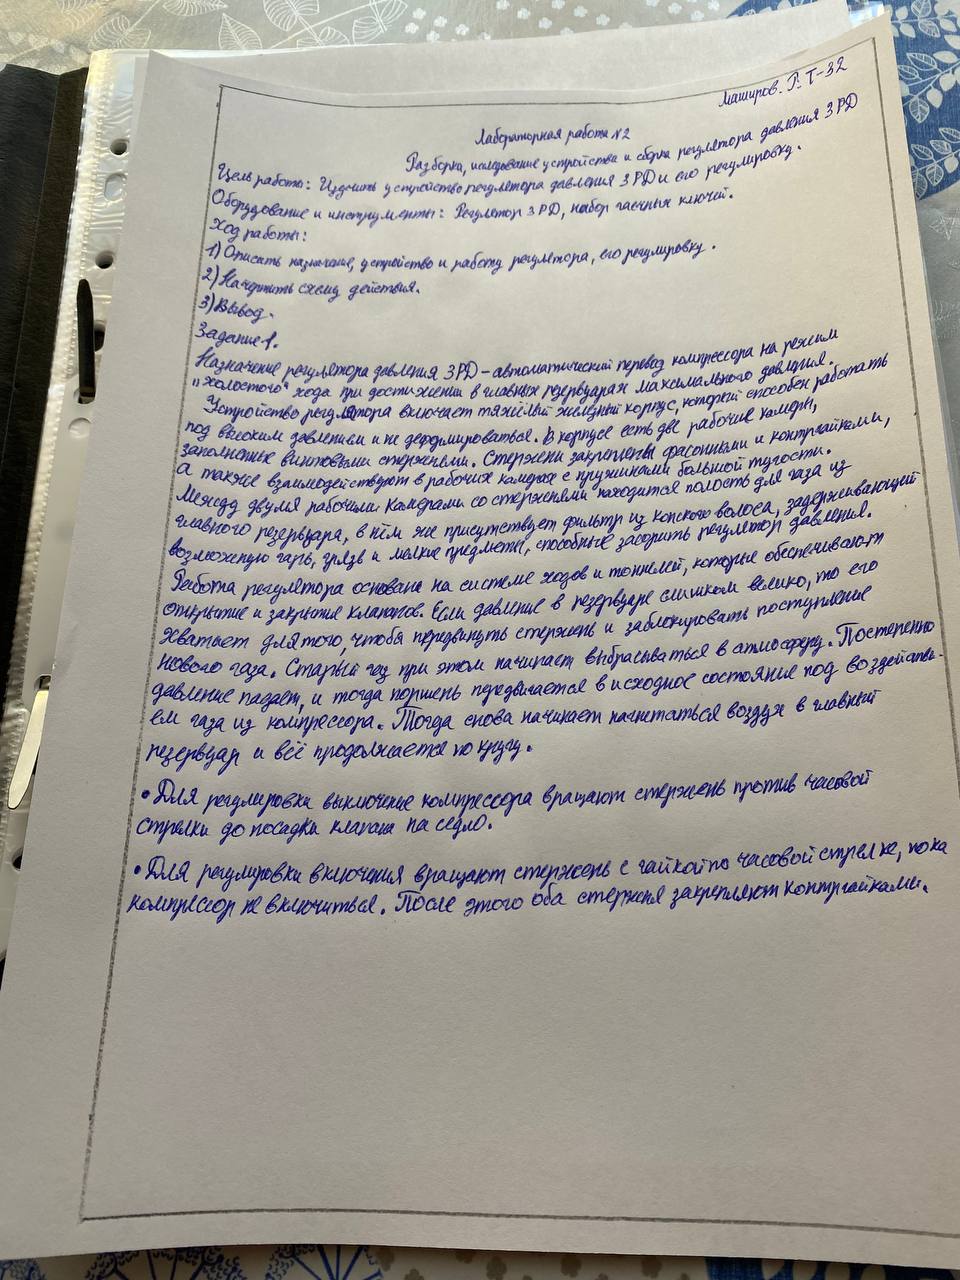 Маширов. Р. Т-32
Лабораторная работа №2
Разборка, исследование устройства и сборка регулятора давления 3РД
Цель работы: Изучить устройство регулятора давления 3РД и его регулировку.
Оборудование и инструменты: Регулятор 3РД, набор гаечных ключей.
Ход работы:
1) Описать назначение, устройство и работу регулятора, его регулировку.
2) Начертить схему действия.
3) Вывод.
Задание 1.
Назначение регулятора давления 3РД - автоматический перевод компрессора на режим
„холостого“ хода при достижении в главных резервуарах максимального давления.
Устройство регулятора включает тяжёлый железный корпус, который способен работать
под высоким давлением и не деформироваться. В корпусе есть две рабочие камеры,
заполненные винтовыми стержнями. Стержни закреплены фасонными и контргайками,
а также взаимодействуют в рабочих камерах с пружинами большой тугости.
Между двумя рабочими камерами со стержнями находится полость для газа из
главного резервуара, в нём же присутствует фильтр из конского волоса, задерживающий
возможную гарь, грязь и мелкие предметы, способные засорить регулятор давления.
Работа регулятора основана на системе ходов и тоннелей, которые обеспечивают
открытие и закрытие клапанов. Если давление в резервуаре слишком велико, то его
хватает для того, чтобы передвинуть стержень и заблокировать поступление
нового газа. Старый газ при этом начинает выбрасываться в атмосферу. Постепенно
давление падает, и тогда поршень передвигается в исходное состояние под воздействи-
ем газа из компрессора. Тогда снова начинает нагнетаться воздух в главный
резервуар и всё продолжается по кругу.
• Для регулировки выключение компрессора вращают стержень против часовой
стрелки до посадки клапана на седло.
• Для регулировки включения вращают стержень с гайкой по часовой стрелке, пока
компрессор не включиться. После этого оба стержня закрепляют контргайками.